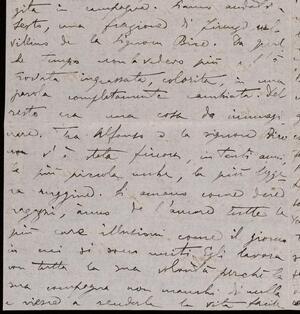 gita in campagna. Siamo andati a
Sesto, una frazione di Firenze nel
villino de la Signora Bice. Da qual
che tempo non la vedevo più e l'ò
trovata ingrassata, colorita, in una
parola completamente cambiata. Del
resto era una cosa da immagi
nare. Tra Alfonso e la signora Bice
non v'è stata fincora, in tanti anni,
la più piccola nube, la più leggera
ruggine. Si amano come due
ragazzi, anno de l'amore tutte le
più care illusioni come il giorno
in cui si sono uniti. Egli lavora
con tutta la sua volontà perché la
sua compagna non manchi di nulla
e riesce a renderle la vita facile